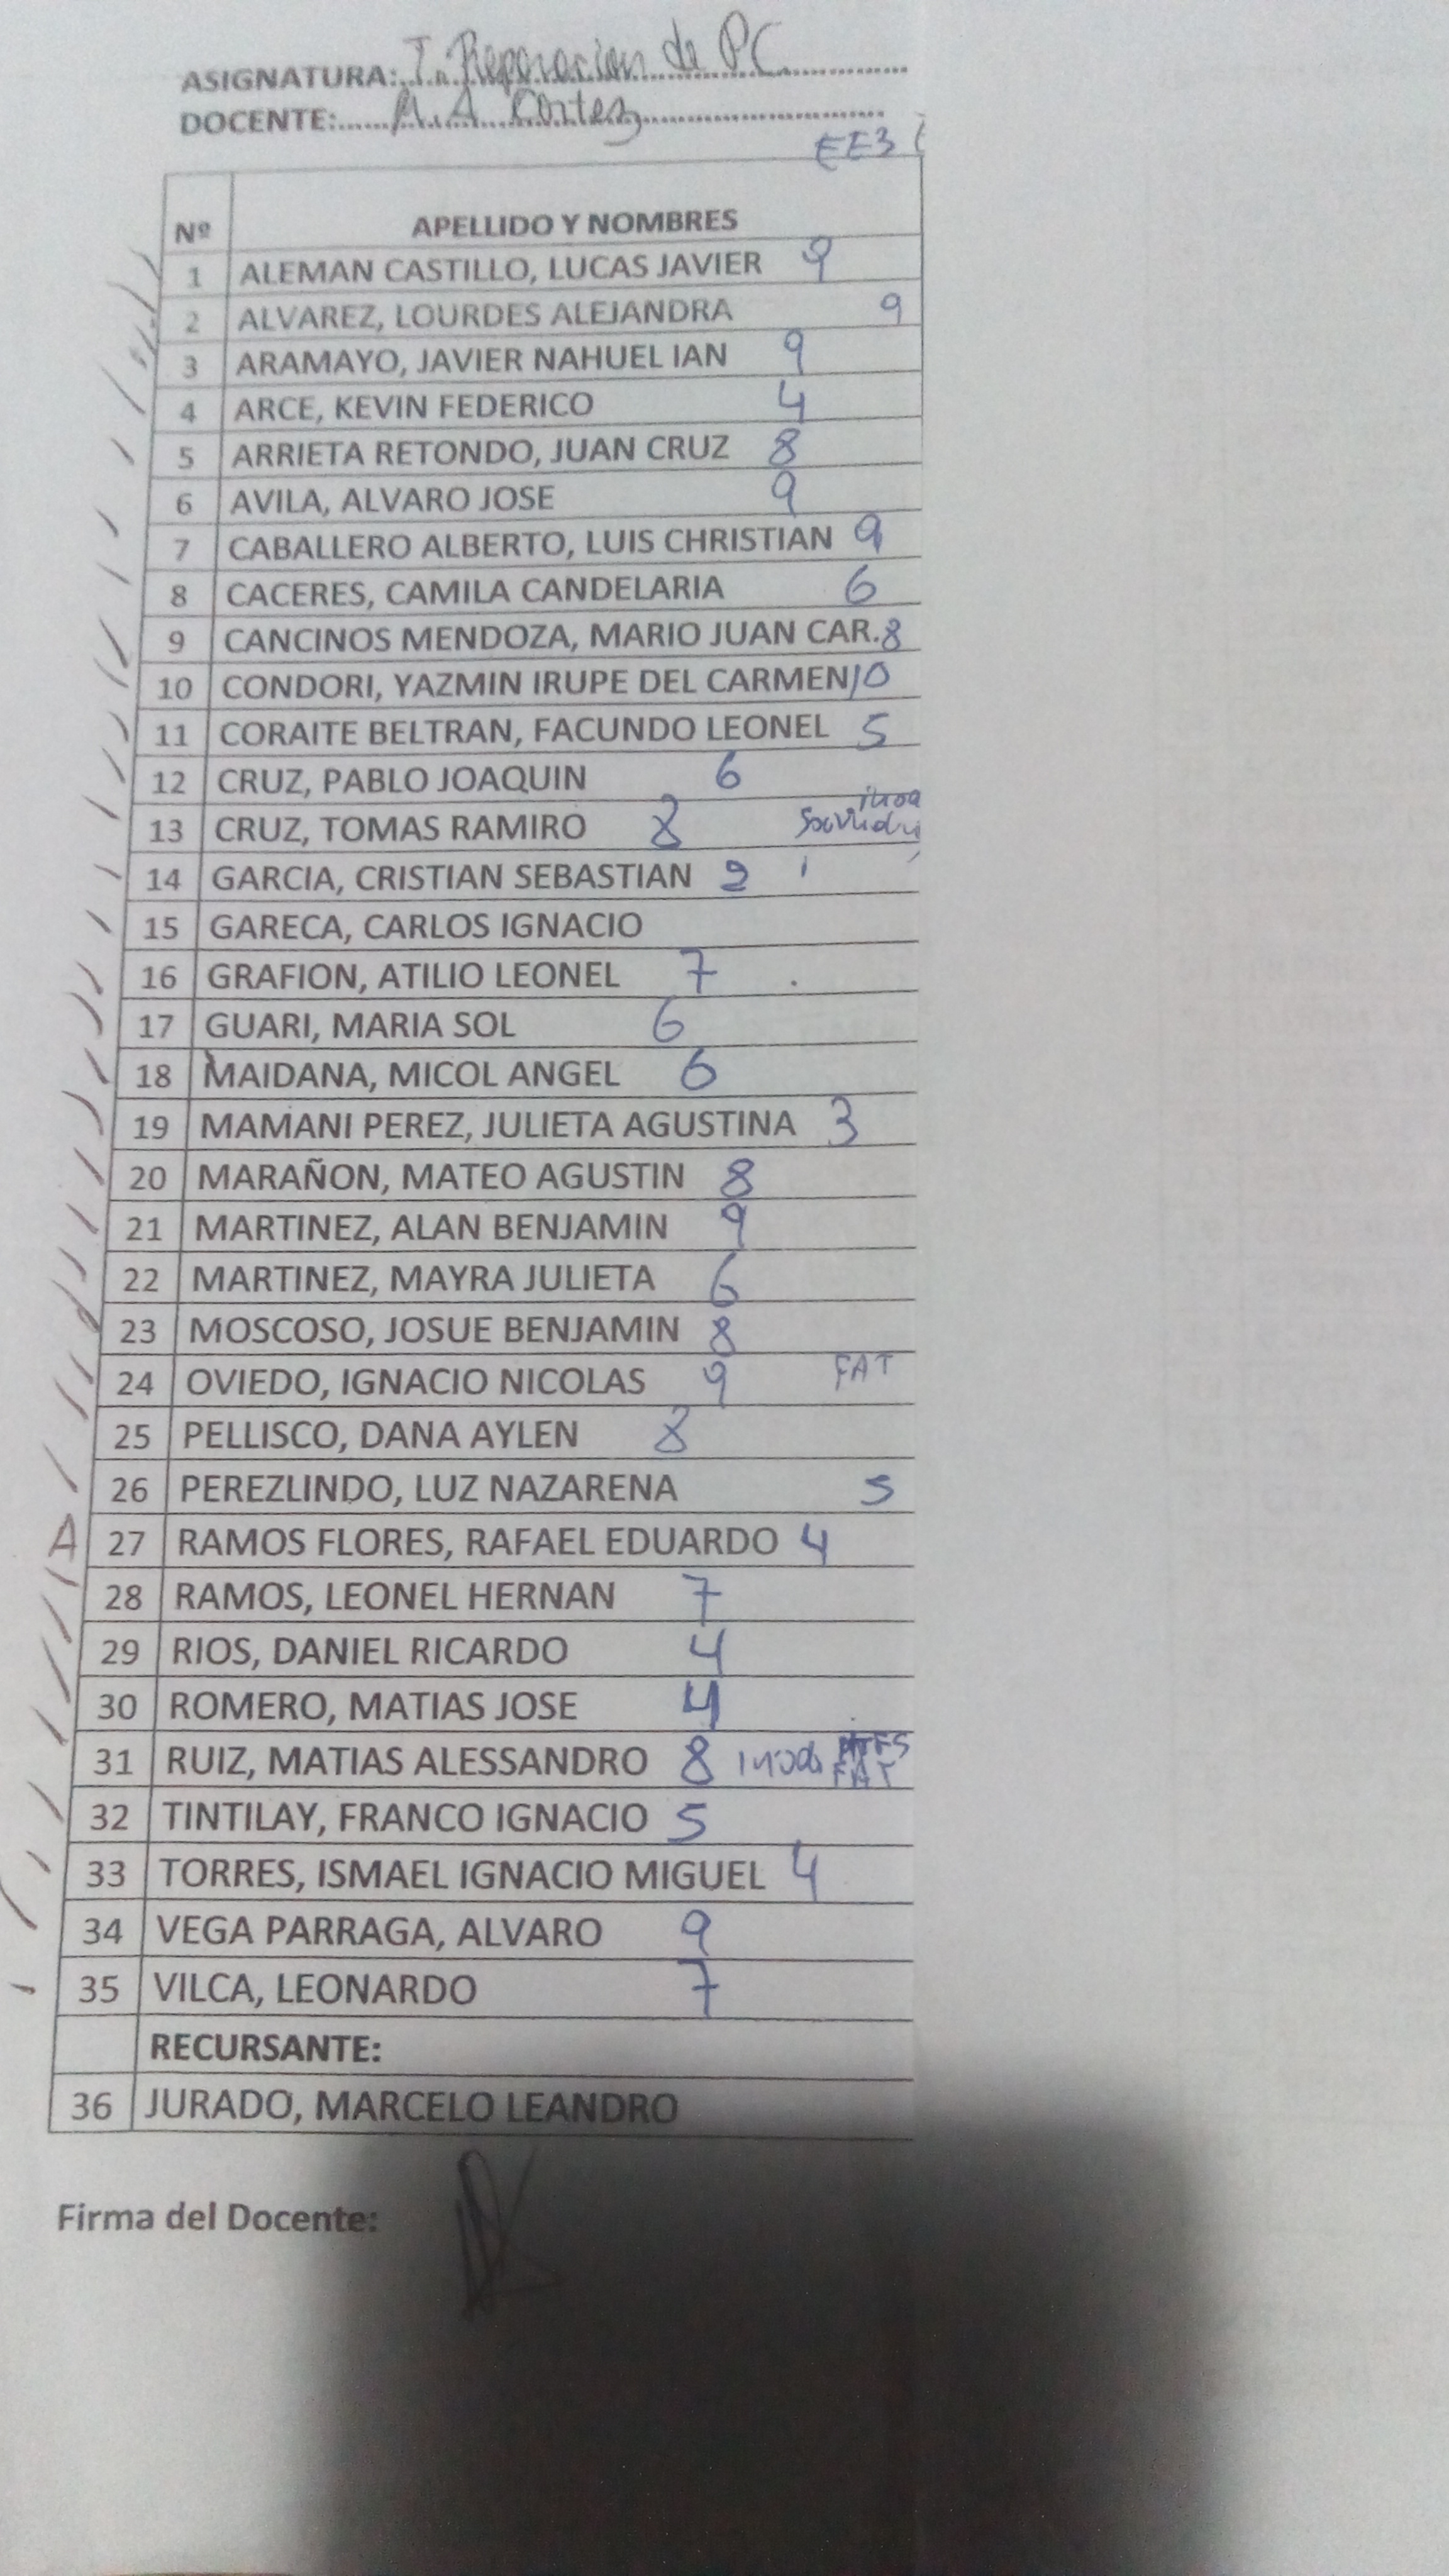 ASIGNATURA: T. Reparacion de PC
DOCENTE: M.A Cortez
EE3
Nº APELLIDO Y NOMBRES
1 ALEMAN CASTILLO, LUCAS JAVIER 9
2 ALVAREZ, LOURDES ALEJANDRA 9
3 ARAMAYO, JAVIER NAHUEL IAN 9
4 ARCE, KEVIN FEDERICO 4
5 ARRIETA RETONDO, JUAN CRUZ 8
6 AVILA, ALVARO JOSE 9
7 CABALLERO ALBERTO, LUIS CHRISTIAN 9
8 CACERES, CAMILA CANDELARIA 6
9 CANCINOS MENDOZA, MARIO JUAN CAR. 8
10 CONDORI, YAZMIN IRUPE DEL CARMEN 10
11 CORAITE BELTRAN, FACUNDO LEONEL 5
12 CRUZ, PABLO JOAQUIN 6
13 CRUZ, TOMAS RAMIRO 8
14 GARCIA, CRISTIAN SEBASTIAN 2
15 GARECA, CARLOS IGNACIO
16 GRAFION, ATILIO LEONEL 7
17 GUARI, MARIA SOL 6
18 MAIDANA, MICOL ANGEL 6
19 MAMANI PEREZ, JULIETA AGUSTINA 3
20 MARAÑON, MATEO AGUSTIN 8
21 MARTINEZ, ALAN BENJAMIN 9
22 MARTINEZ, MAYRA JULIETA 6
23 MOSCOSO, JOSUE BENJAMIN 8
24 OVIEDO, IGNACIO NICOLAS 9 FAT
25 PELLISCO, DANA AYLEN 8
26 PEREZLINDO, LUZ NAZARENA 5
A 27 RAMOS FLORES, RAFAEL EDUARDO 4
28 RAMOS, LEONEL HERNAN 7
29 RIOS, DANIEL RICARDO 4
30 ROMERO, MATIAS JOSE 4
31 RUIZ, MATIAS ALESSANDRO 8 FAT
32 TINTILAY, FRANCO IGNACIO 5
33 TORRES, ISMAEL IGNACIO MIGUEL 4
34 VEGA PARRAGA, ALVARO 9
35 VILCA, LEONARDO 7
RECURSANTE:
36 JURADO, MARCELO LEANDRO
Firma del Docente: